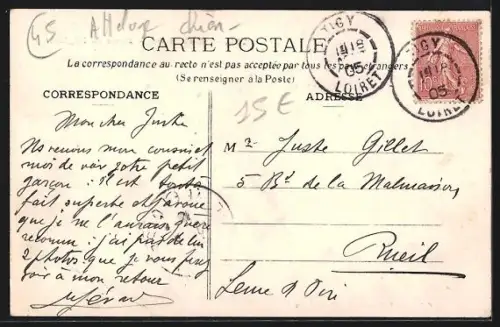 45 Attelage chien
CARTE POSTALE
La correspondance au recto n'est pas acceptée par tous les pays étrangers
(Se renseigner à la Poste)
CORRESPONDANCE
ADRESSE
15 €
TIGY
05
LOIRET
TIGY
05
LOIRET
10
Mon cher Juste
Ns venons mon cousin et
moi de voir votre petit
garçon : il est tout à
fait superbe et j'avoue
que je ne l'aurais guère
reconnu : j'ai pas de lui
2 photos que je vous ferai
voir à mon retour
Mr Juste Gillet
5 Bd de la Malmaison
Rueil
Seine & Oise